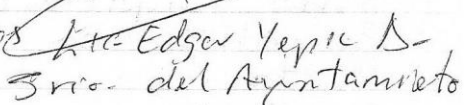 Lic. Edgar Yepiz B-
Srio. del Ayuntamieto